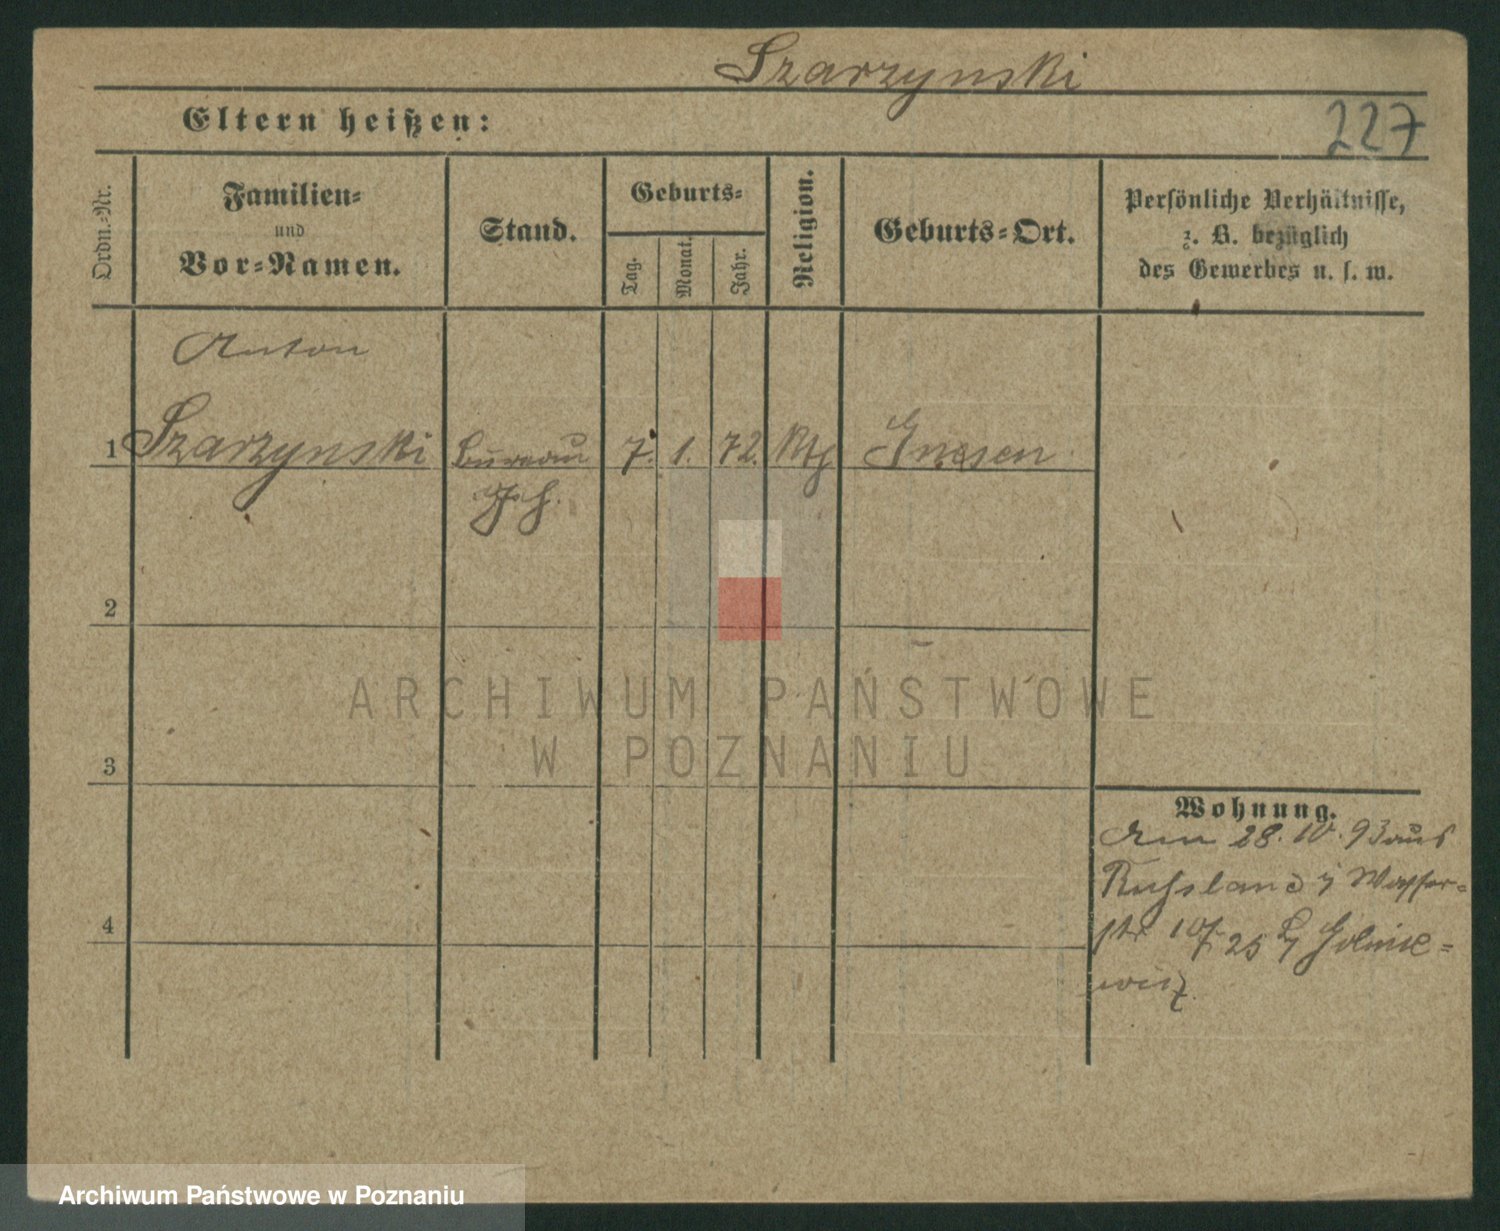 Szarzynski
Eltern heißen:
227
Ordn.=Nr.
Familien=
und
Vor=Namen.
Stand.
Geburts=
Tag.
Monat.
Jahr.
Religion.
Geburts=Ort.
Persönliche Verhältnisse,
z. B. bezüglich
des Gewerbes u. s. w.
Anton
1 Szarzynski Bureau 7. 1. 72. Kth Gnesen
2
3
4
Wohnung.
Am 28. 10. 93 aus
Rußland Wasser=
str 25
ARCHIWUM PAŃSTWOWE
W POZNANIU
Archiwum Państwowe w Poznaniu